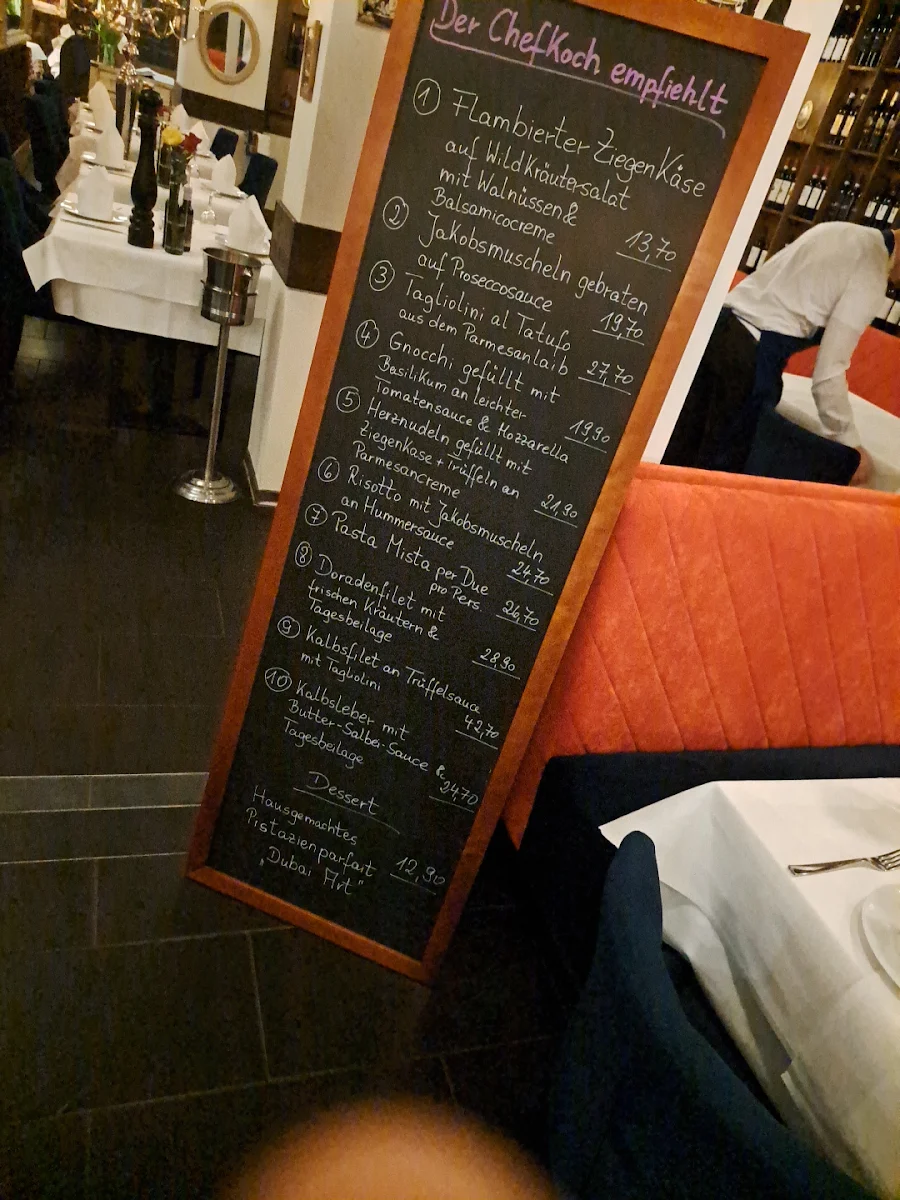 Der Chefkoch empfiehlt
① Flambierter Ziegenkäse
auf Wildkräutersalat
mit Walnüssen &
Balsamicocreme 13,70
② Jakobsmuscheln gebraten
auf Proseccosauce 19,70
③ Tagliolini al Tatufo
aus dem Parmesanlaib 27,70
④ Gnocchi gefüllt mit
Basilikum an leichter
Tomatensauce & Mozzarella 19,90
⑤ Herznudeln gefüllt mit
Ziegenkäse + Trüffeln an
Parmesancreme 21,90
⑥ Risotto mit Jakobsmuscheln
an Hummersauce 24,70
⑦ Pasta Mista per Due
pro Pers. 26,70
⑧ Doradenfilet mit
frischen Kräutern &
Tagesbeilage 28,90
⑨ Kalbsfilet an Trüffelsauce
mit Tagliolini 42,70
⑩ Kalbsleber mit
Butter-Salbei-Sauce &
Tagesbeilage 24,70
Dessert
Hausgemachtes
Pistazienparfait
„Dubai Art" 12,90